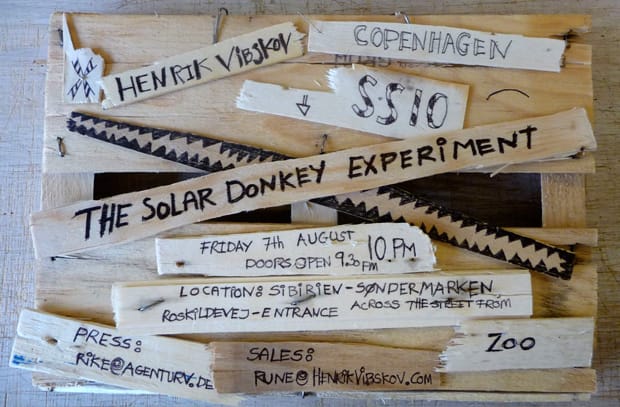 HENRIK VIBSKOV
COPENHAGEN
SS10
THE SOLAR DONKEY EXPERIMENT
FRIDAY 7th AUGUST 10.PM
DOORS OPEN 9.30 PM
LOCATION: SIBIRIEN-SØNDERMARKEN
ROSKILDEVEJ-ENTRANCE ACROSS THE STEET FROM
ZOO
PRESS:
RIKE@AGENTURV.DE
SALES:
RUNE@HENRIKVIBSKOV.COM